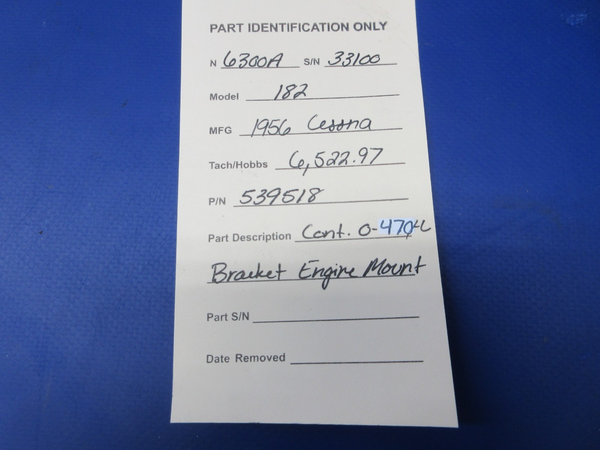 PART IDENTIFICATION ONLY
N 6300A S/N 33100
Model 182
MFG 1956 Cessna
Tach/Hobbs 6,522.97
P/N 539518
Part Description Cont. O-470-L
Bracket Engine Mount
Part S/N
Date Removed